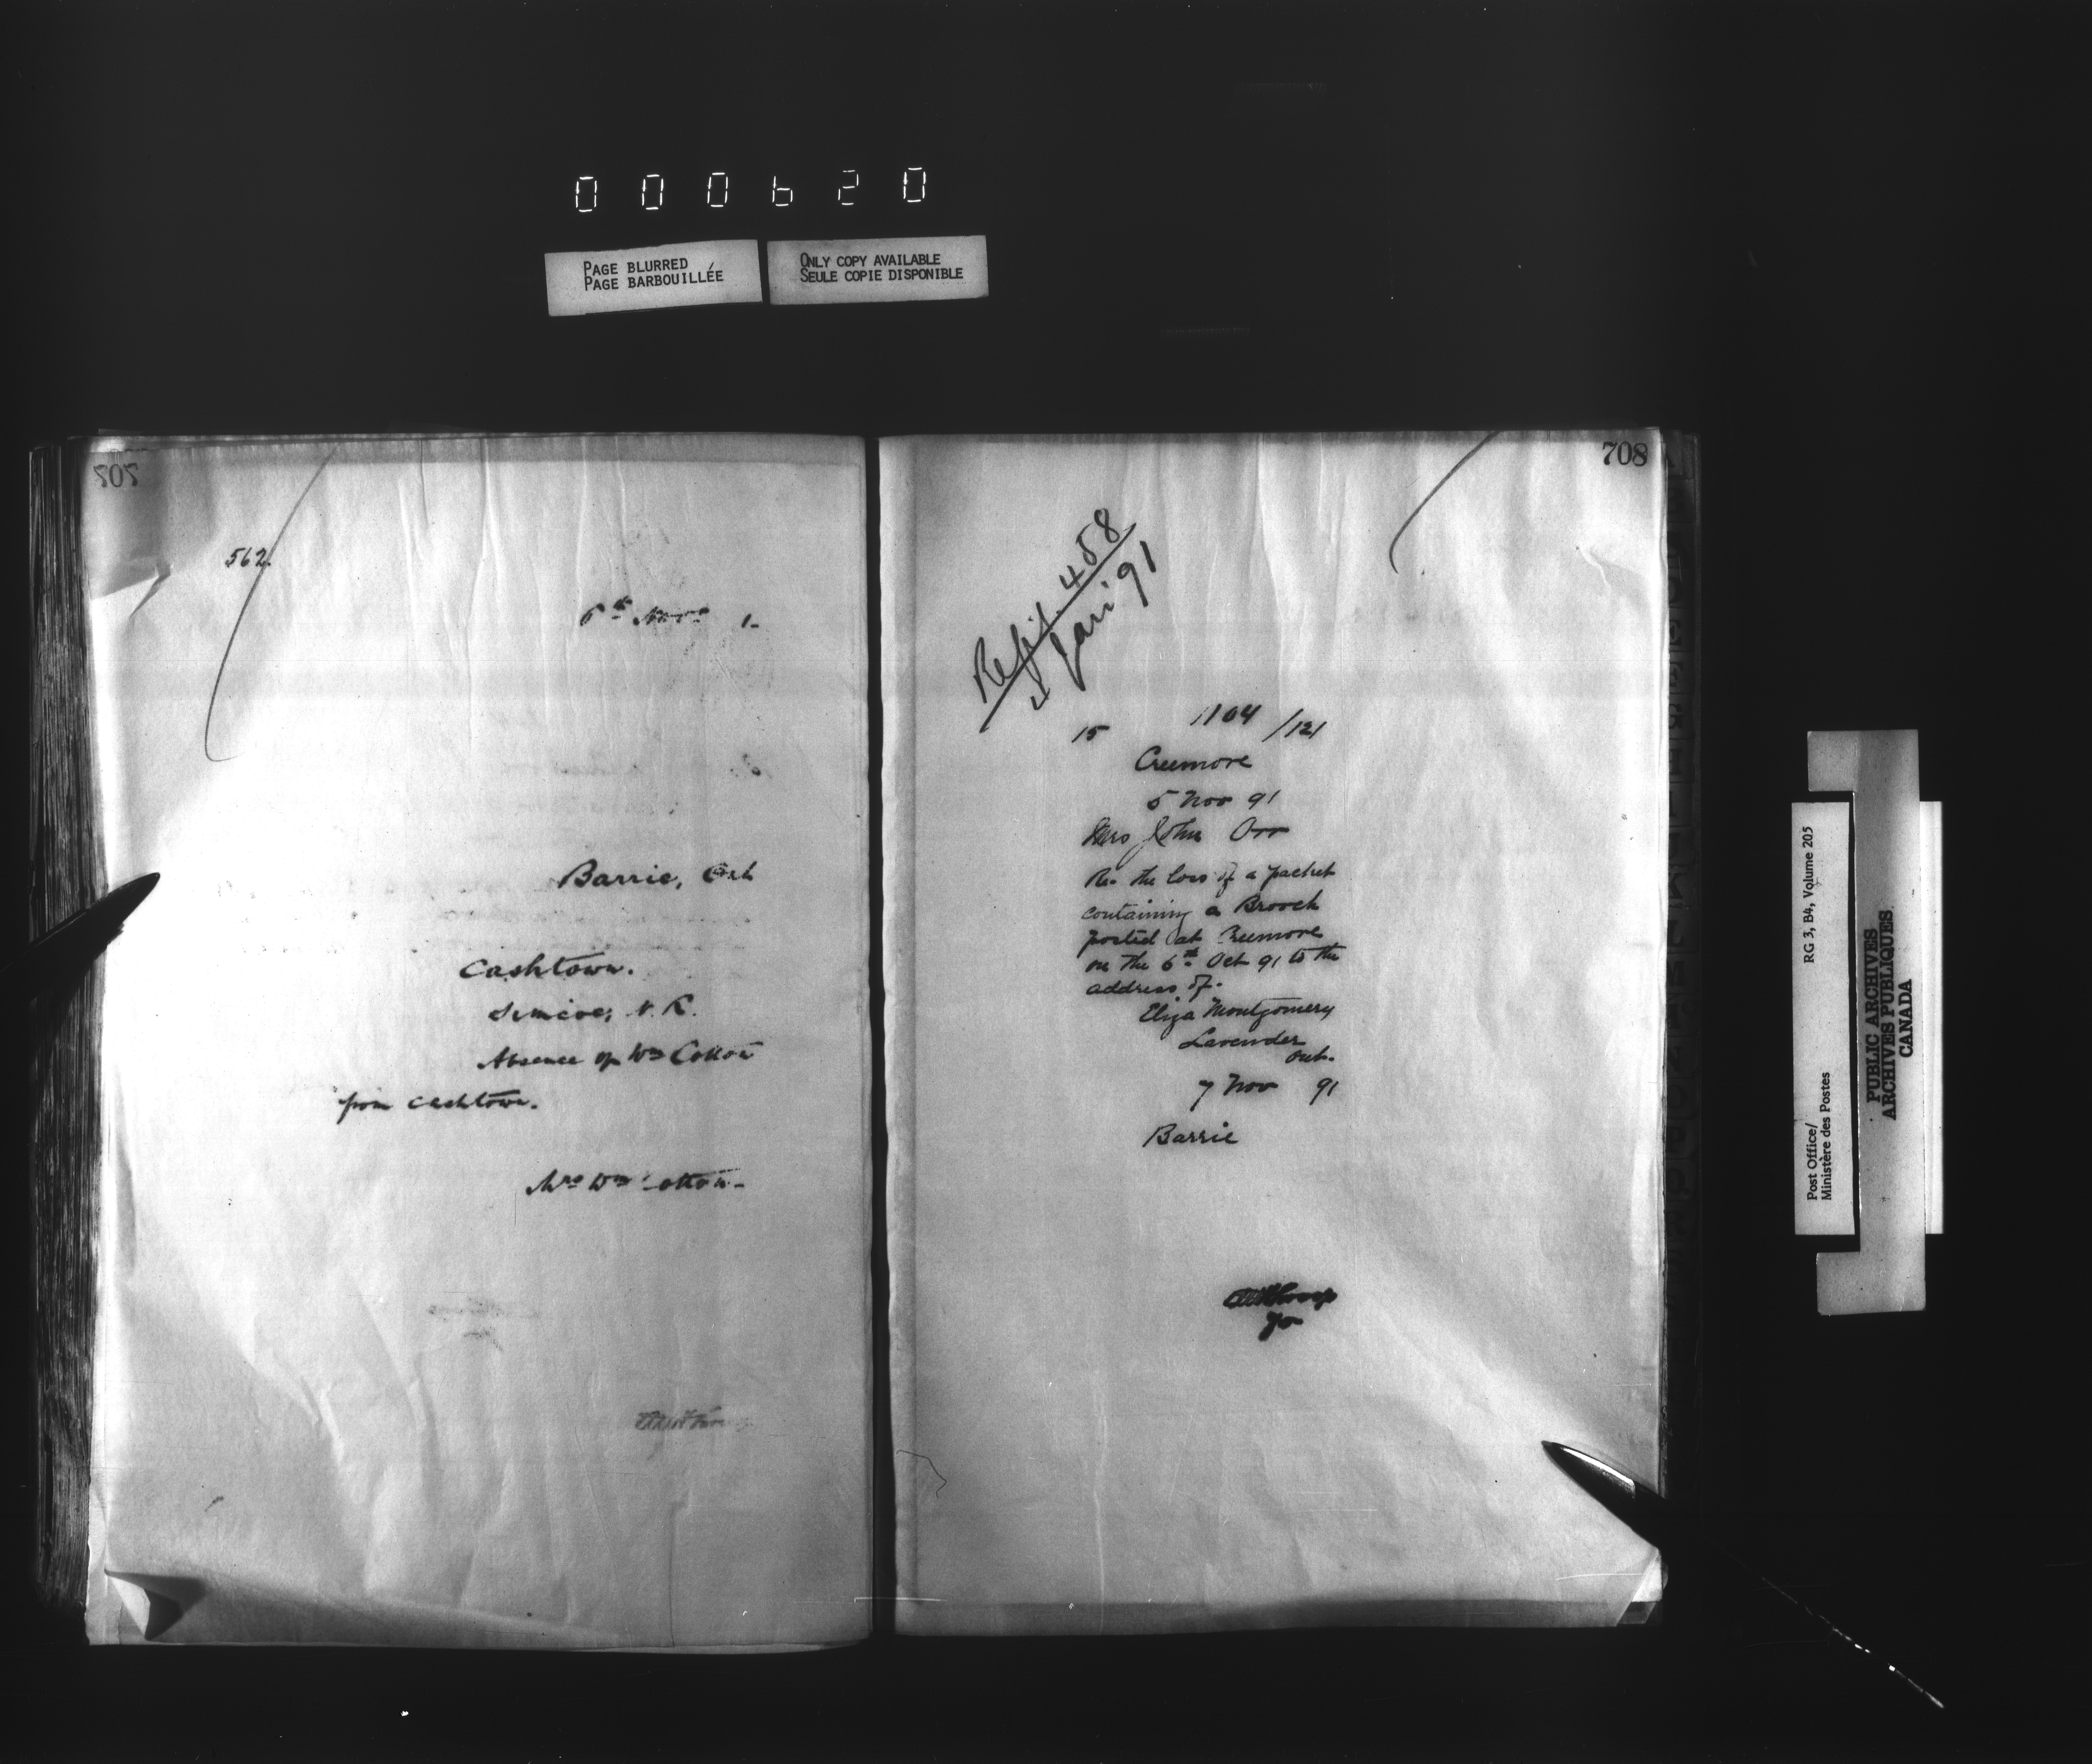 000620
PAGE BLURRED
PAGE BARBOUILLÉE
ONLY COPY AVAILABLE
SEULE COPIE DISPONIBLE
707
562.
6th Nov 1-
Barrie, Ont
Cashtown.
Simcoe, N. R.
Absence of Wm Cotton
from Cashtown.
Mrs Wm Cotton-
708
458
4 Jan 91
15 1104 /121
Creemore
5 Nov 91
Mrs John Orr
Re. the loss of a packet
containing a Brooch
posted at Creemore
on the 6th Oct 91 to the
address of.
Eliza Montgomery
Lavender
Ont.
7 Nov 91
Barrie
RG 3, B4, Volume 205
Post Office/
Ministère des Postes
PUBLIC ARCHIVES
ARCHIVES PUBLIQUES
CANADA